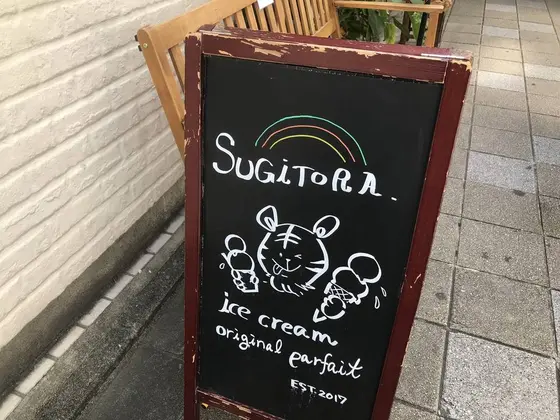 SUGiTORA.
ice cream
original parfait
EST.2017